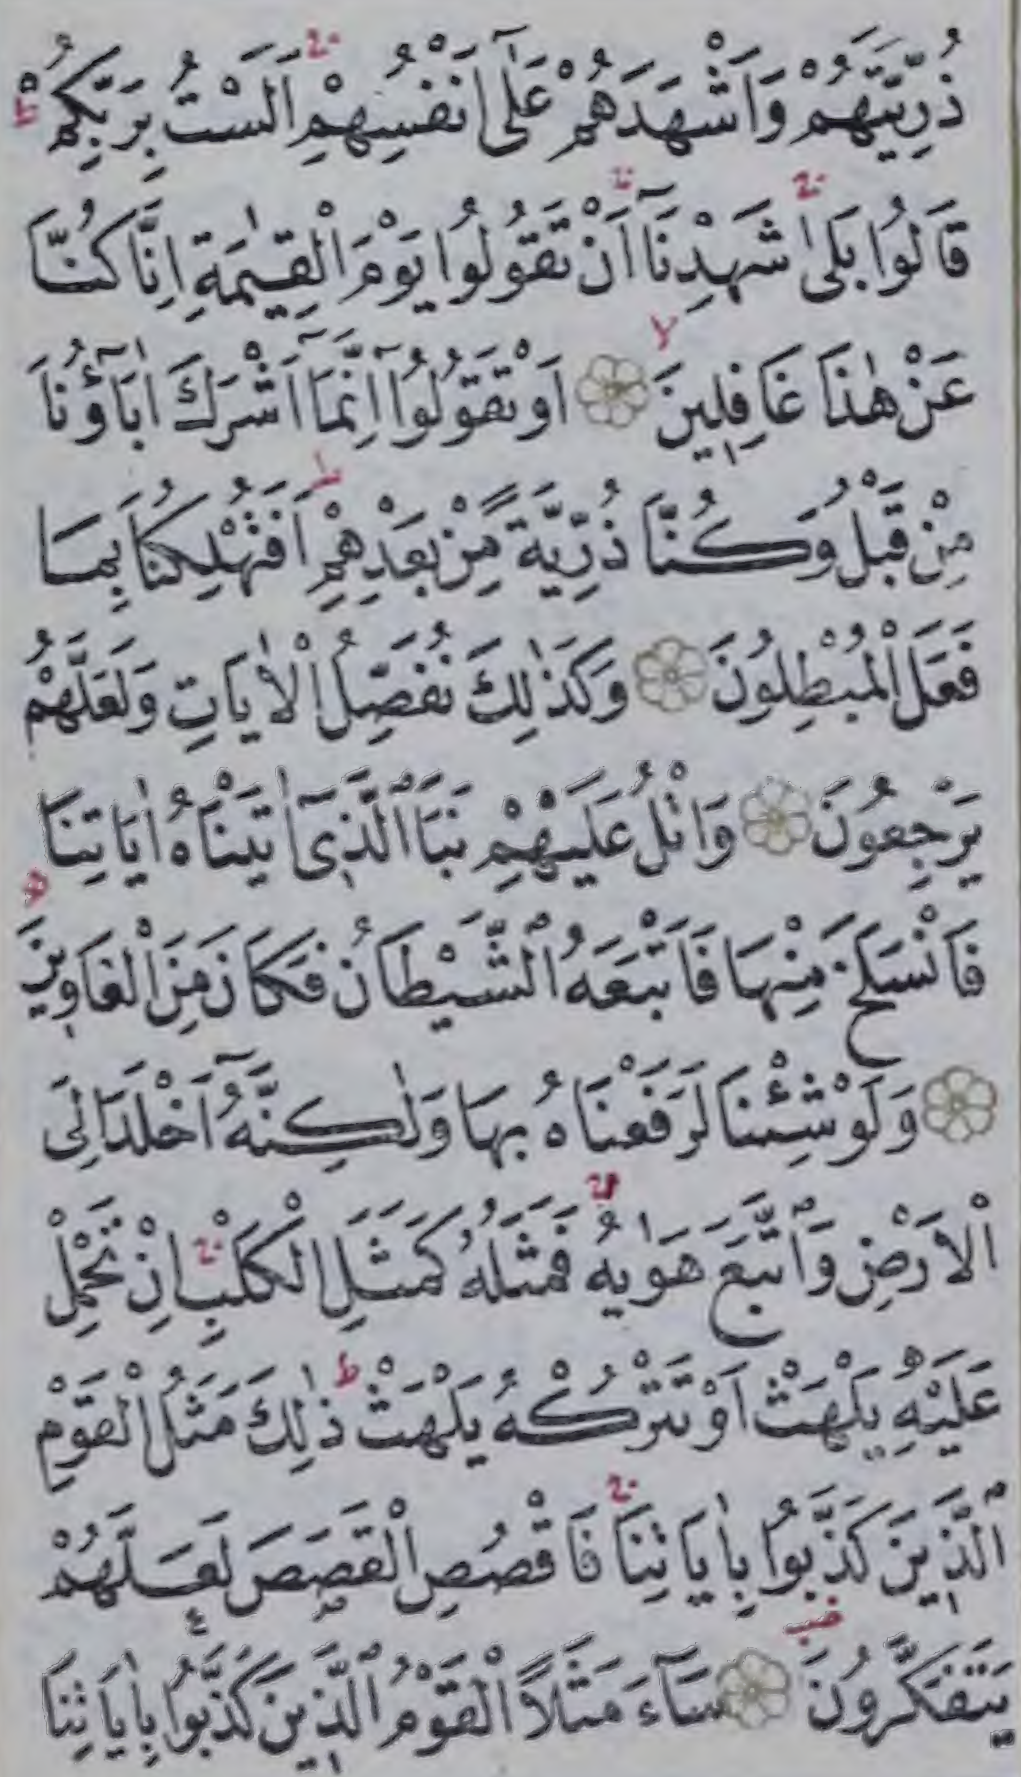 ذُرِّيَّتَهُمْ وَاَشْهَدَهُمْ عَلٰٓى اَنْفُسِهِمْ اَلَسْتُ بِرَبِّكُمْ ط
قَالُوا بَلٰى شَهِدْنَآ اَنْ تَقُولُوا يَوْمَ الْقِيٰمَةِ اِنَّا كُنَّا
عَنْ هٰذَا غَافِلِينَ لا اَوْ تَقُولُوٓا اِنَّمَآ اَشْرَكَ اٰبَآؤُنَا
مِنْ قَبْلُ وَكُنَّا ذُرِّيَّةً مِنْ بَعْدِهِمْ ج اَفَتُهْلِكُنَا بِمَا
فَعَلَ الْمُبْطِلُونَ وَكَذٰلِكَ نُفَصِّلُ الْاٰيَاتِ وَلَعَلَّهُمْ
يَرْجِعُونَ وَاتْلُ عَلَيْهِمْ نَبَاَ الَّذِٓى اٰتَيْنَاهُ اٰيَاتِنَا
فَانْسَلَخَ مِنْهَا فَاَتْبَعَهُ الشَّيْطَانُ فَكَانَ مِنَ الْغَاوِينَ
وَلَوْ شِئْنَا لَرَفَعْنَاهُ بِهَا وَلٰكِنَّهُٓ اَخْلَدَ اِلَى
الْاَرْضِ وَاتَّبَعَ هَوٰيهُ ج فَمَثَلُهُ كَمَثَلِ الْكَلْبِ ج اِنْ تَحْمِلْ
عَلَيْهِ يَلْهَثْ اَوْ تَتْرُكْهُ يَلْهَثْ ط ذٰلِكَ مَثَلُ الْقَوْمِ
الَّذِينَ كَذَّبُوا بِاٰيَاتِنَا ج فَاقْصُصِ الْقَصَصَ لَعَلَّهُمْ
يَتَفَكَّرُونَ سَآءَ مَثَلًا الْقَوْمُ الَّذِينَ كَذَّبُوا بِاٰيَاتِنَا